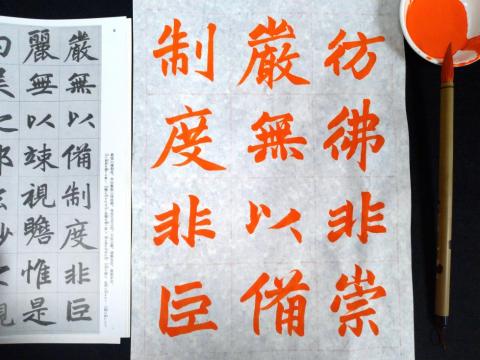 彷彿非崇
嚴無以備
制度非巨
嚴無以備制度非巨
麗無以竦視瞻惟是